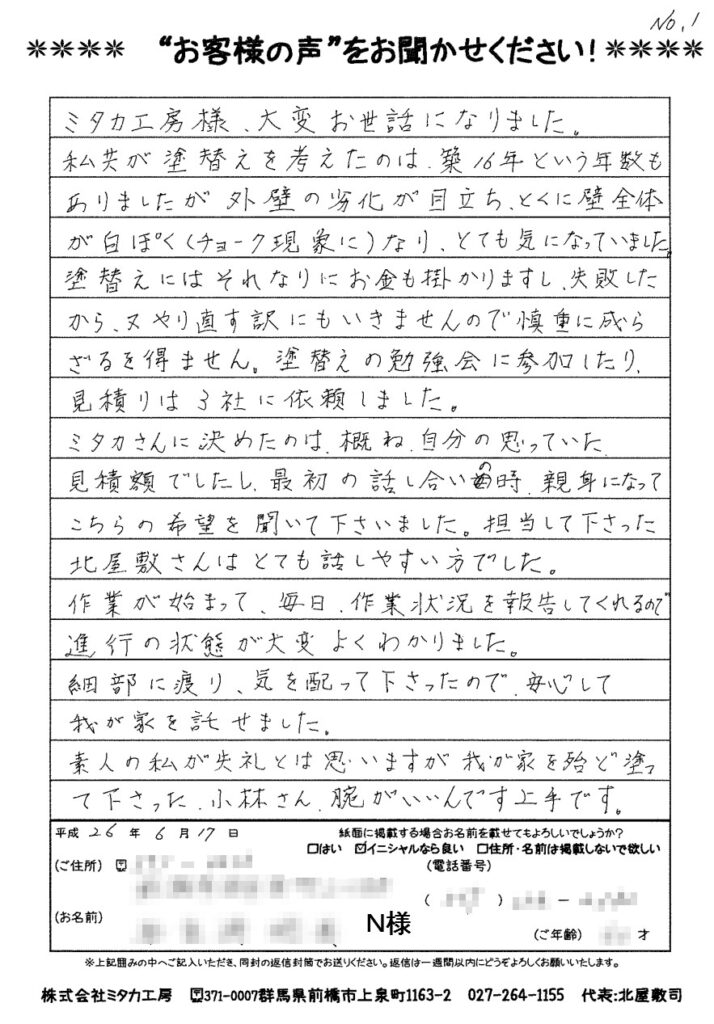 No.1
＊＊＊＊ “お客様の声”をお聞かせください！＊＊＊＊
ミタカ工房様、大変お世話になりました。
私共が塗替えを考えたのは、築16年という年数も
ありましたが外壁の劣化が目立ち、とくに壁全体
が白ぽく(チョーク現象に)なり、とても気になっていました。
塗替えにはそれなりにお金も掛かりますし、失敗した
から、又やり直す訳にもいきませんので慎重に成ら
ざるを得ません。塗替えの勉強会に参加したり、
見積りは3社に依頼しました。
ミタカさんに決めたのは、概ね、自分の思っていた
見積額でしたし、最初の話し合いの時、親身になって
こちらの希望を聞いて下さいました。担当して下さった
北屋敷さんはとても話しやすい方でした。
作業が始まって、毎日、作業状況を報告してくれるので
進行の状態が大変よくわかりました。
細部に渡り、気を配って下さったので、安心して
我が家を託せました。
素人の私が失礼とは思いますが我が家を殆ど塗っ
て下さった、小林さん、腕がいいんです上手です。
平成 26 年 6 月 17 日 紙面に掲載する場合お名前を載せてもよろしいでしょうか？
□はい ☑イニシャルなら良い □住所・名前は掲載しないで欲しい
(ご住所) 〒 (電話番号)
( ) －
(お名前) N様 (ご年齢) 才
※上記囲みの中へご記入いただき、同封の返信封筒でお送りください。返信は一週間以内にどうぞよろしくお願いいたします。
株式会社ミタカ工房 〒371-0007群馬県前橋市上泉町1163-2 027-264-1155 代表:北屋敷司